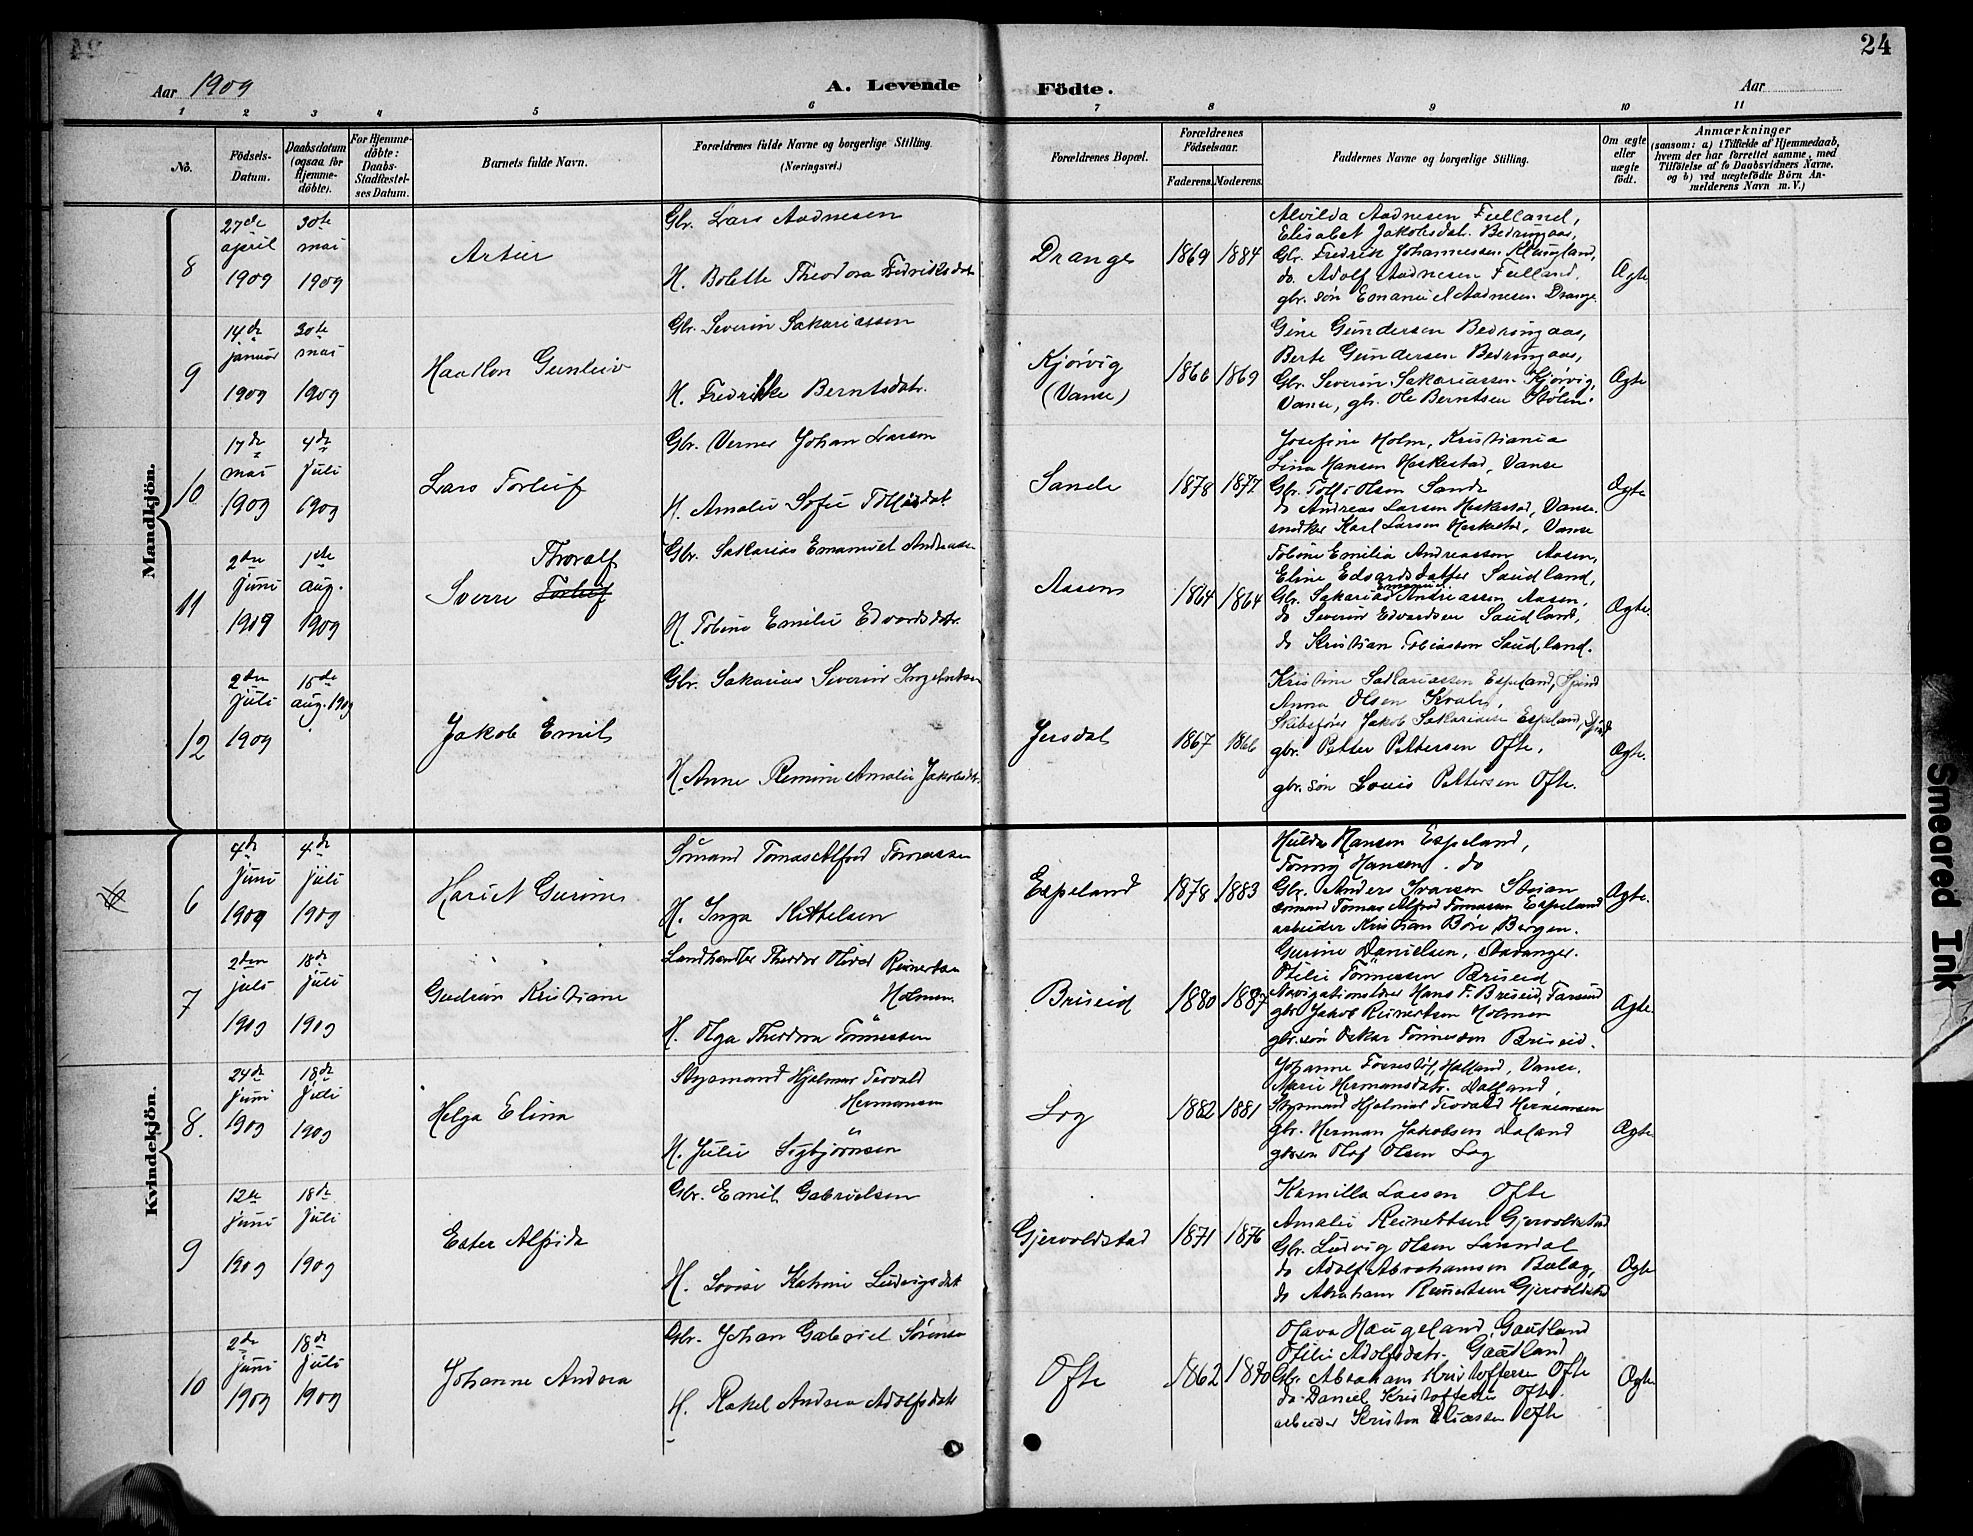 24
Aar 1909
A. Levende Födte.
Aar
1 2 3 4 5 6 7 8 9 10 11
No.
Födsels-
Datum.
Daabsdatum
(ogsaa for
Hjemme-
döbte).
For Hjemme-
döbte:
Daabs-
Stadfæstel-
ses Datum.
Barnets fulde Navn.
Forældrenes fulde Navne og borgerlige Stilling.
(Næringsvei.)
Forældrenes Bopæl.
Forældrenes
Födselsaar.
Faderens. Moderens.
Faddernes Navne og borgerlige Stilling.
Om ægte
eller
uægte
födt.
Anmærkninger
(saasom: a) i Tilfælde af Hjemmedaab,
hvem der har forrettet samme, med
Tilföielse af to Daabsvidners Navne.
og b) ved uægtefödte Börn An-
melderens Navn m. V.)
Mandkjön.
8
27de
april
1909
30te
mai
1909
Artur
Gbr. Lars Aadnesen
H. Bolette Theodora Fredriksdatr
Drange
1869 1884
Alvilda Aadnesen Fulland,
Elisabet Jakobsdatr. Bedringaas,
Gbr. Fredrik Johannessen Klungland,
do. Adolf Aadnesen Fulland.
gbr. søn Emanuel Aadnesen Drange.
Ægte
9
14de
januar
1909
30te
mai
1909
Haakon Gunleiv
Gbr. Severin Sakariassen
H. Fredrikke Berntsdatr.
Kjørvig
(Vanse)
1866 1869
Gine Gundersen Bedringaas,
Berte Gundersen Bedringaas,
Gbr. Severin Sakariassen Kjørvig,
Vanse, gbr. Ole Berntsen Stolen.
Ægte
10
17de
mai
1909
4de
juli
1909
Lars Torleif
Gbr. Verner Johan Larsen
H. Amalie Sofie Tollisdat.
Sande
1878 1877
Josefine Holm, Kristiania
Lina Hansen Meskestad, Vanse
Gbr. Tolli Olsen Sande
do Andreas Larsen Meskestad, Vanse.
snedker Karl Larsen Meskestad, Vanse
Ægte
11
2den
juni
1909
1ste
aug.
1909
Thoralf
Sverre Torleif
Gbr. Sakarias Emanuel Andreassen
H. Tobine Emilie Edvardsdatr.
Aasen
1864 1864
Tobine Emilia Andreassen Aasen,
Eline Edvardsdatter Saudland,
Emanuel
Gbr. Sakarias Andreassen Aasen,
do Severin Edvardsen Saudland,
do Kristian Tobiassen Saudland.
Ægte.
12
2den
juli
1909
15de
aug. 1909
Jakob Emil
Gbr. Sakarias Severin Ingebretsen
H. Anne Amalie Jakobsdtr.
Jersdal
1867 1866
Kristine Sakariassen Espeland, Spind
Anna Olsen
Skibsfører Jakob Sakariasen Espeland,
gbr. Petter Pettersen Ofte,
gbr. søn Louis Pettersen Ofte.
Ægte.
Kvindekjön.
6
4de
juni
1909
4de
juli
1909
Hariet Gurine
Sømand Tomas Alfred Tomassen
H. Inga Kittelsen
Espeland
1878 1883
Hulda Hansen Espeland,
Tomy Hansen. do
Gbr. Anders Ivarsen Steian
sømand Tomas Alfred Tomassen Espeland
arbeider Kristian Børe, Bergen.
Ægte.
7
2den
juli
1909
18de
juli
1909
Gudrun Kristiane
Landhandler Theodor Oliver Reinertsen
Holmen
H. Olga Theodora Tønnessen
Briseid
1880 1887
Gurine Danielsen, Stavanger.
Otilie Tønnessen Briseid
Navigationslærer Hans F. Briseid, Farsund
gbr Jakob Reinertsen Holmen
gbr. søn Oskar Tønnessen Briseid.
Ægte.
8.
24de
juni
1909
18de
juli
1909
Helga Elina
Styrmand Hjalmar Tervald
Hermansen
H. Julie Sigbjørnsen
Log
1882 1881
Johanne Halland, Vanse.
Marie Hermansdatr. Dalland,
Styrmand Hjalmar Tervald Hermansen
gbr. Herman Jakobsen Daland
gbr. søn Olaf Olsen Log
Ægte.
9
12te
juni
1909
18de
juli
1909
Ester Alfrida
Gbr. Emil Gabrielsen
H. Lovise Katrine Ludvigsdatr
Gjervoldstad
1871 1876
Kamilla Larsen Ofte
Amalie Reinertsen Gjervoldstad
Gbr. Ludvig Olsen Sanndal
do Adolf Abrahamsen Bølag,
do Abraham Reinertsen Gjervoldstad
Ægte
10
2den
juni
1909
18de
juli
1909
Johanne Andrea
Gbr. Johan Gabriel Sørensen
H. Rakel Andrea Adolfsdatr
Ofte
1862 1870
Olava Haugeland, Gautland
Otilie Adolfsdatr. Gautland
Gbr Abraham Kristoffersen Ofte
do Daniel Kristoffersen Ofte.
arbeider Kristen Eliassen Ofte
Ægte.
Smeared Ink